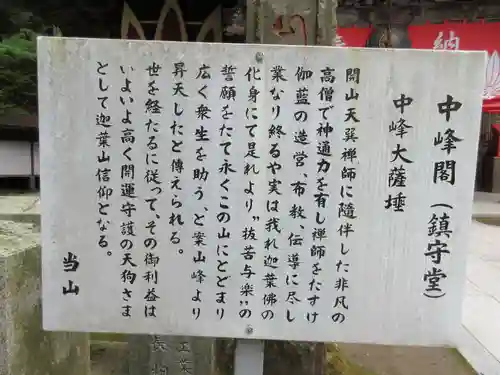 中峰閣（鎮守堂）
中峰大薩埵
開山天巽禅師に随伴した非凡の
高僧で神通力を有し禅師をたすけ
伽藍の造営、布教、伝導に尽し
業なり終るや実は我れ迦葉佛の
化身にて是れより〝抜苦与楽〟の
誓願をたて永くこの山にとどまり
広く衆生を助う、と案山峰より
昇天したと傳えられる。
世を経たるに従って、その御利益は
いよいよ高く開運守護の天狗さま
として迦葉山信仰となる。
当山
納